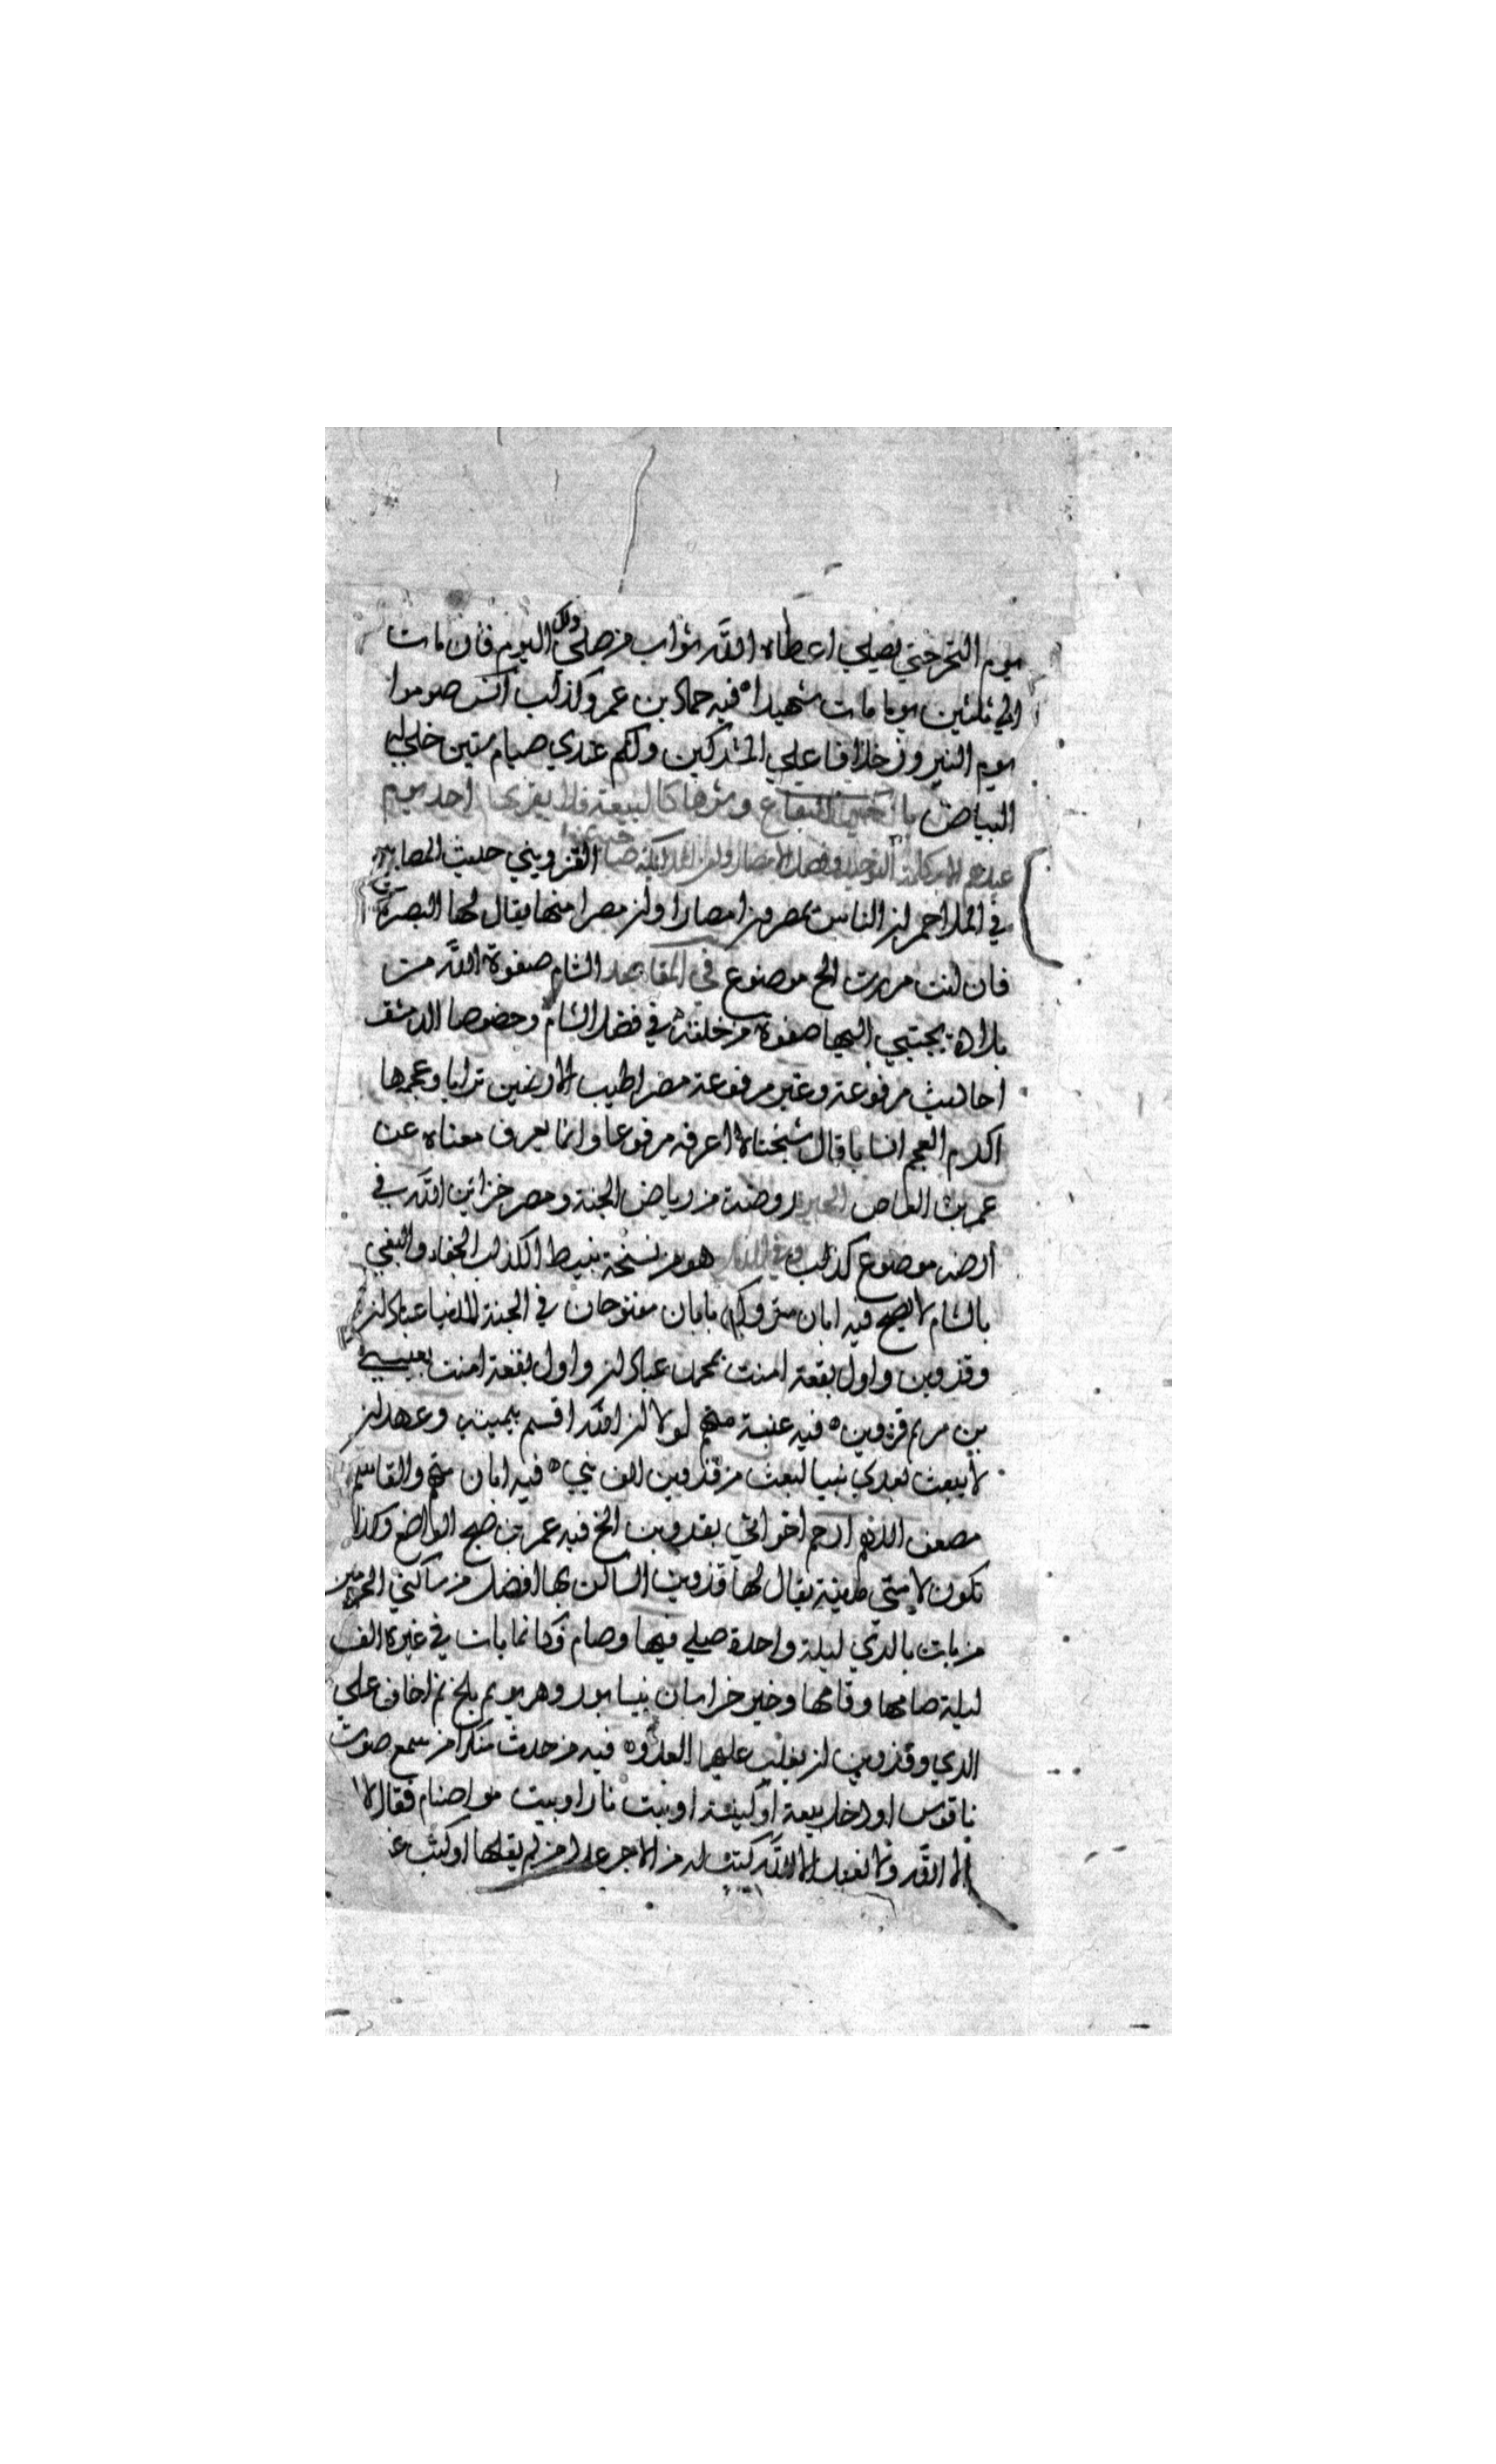 يوم النحر حتي يصلي اعطاه الله ثواب من صلي ذلك اليوم فان مات
الي ثلثين يوما مات شهيدا ه فيه حماد بن عمرو كذاب انس صوموا
يوم النيروز خلافا علي المشركين ولكم عندي صيام سنتين خلي ليه
البياض باب البقاع وشرها كالبيعة فلا يقربها احد يوم
عيدهم القزويني حديث المصابيح
في الملاحم ان الناس يمصرون امصارا وان مصرا منها يقال لها البصرة
فان انت مررت الخ موضوع في المقاصد الشام صفوة الله من
بلاده يجتبي اليها صفوته من خلقه في فضل الشام وخصوصا الدمشق
احاديث مرفوعة وغير مرفوعة مصر اطيب الارضين ترابا وعجمها
اكرم العجم انسابا قال شيخنا لا اعرفه مرفوعا وانما يعرف معناه عن
عمر بن العاص روضة من رياض الجنة ومصر خزائن الله في
ارضه موضوع كذلك هو من نسخة نبيط الكذاب الجفاء والبغي
بالشام لا يصح فيه ابان متروك بابان مفتوحان في الجنة للدنيا عبادان
وقزوين واول بقعة امنت بمحمد عبادان واول بقعة امنت بعيسي
بن مريم قزوين ه فيه عنبسة متهم لولا ان الله اقسم بيمينه وعهد ان
لا يبعث بعدي نبيا لبعث من قزوين الف نبي ه فيه ابان متهم والقاسم
مضعف اللهم ارحم اخواني بقزوين الخ فيه عمر بن صبح الواضع وكذا
تكون لامتي مدينة يقال لها قزوين الساكن بها افضل من ساكني الحرمين
من بات بالري ليلة واحدة صلي فيها وصام فكانما بات في غيره الف
ليلة صامها وقامها وخير خراسان نيسابور وهر يوثم بلخ ثم اخاف علي
الري وقزوين ان يغلب عليهما العدو ه فيه من حدث منكرا من سمع صوت
ناقوس او دخل بيعة او كنيسة او بيت نار او بيت اصنام فقال لا
اله الا الله ولا نعبد الا الله كتب له من الاجر عدد من لم يقلها او كتب عند